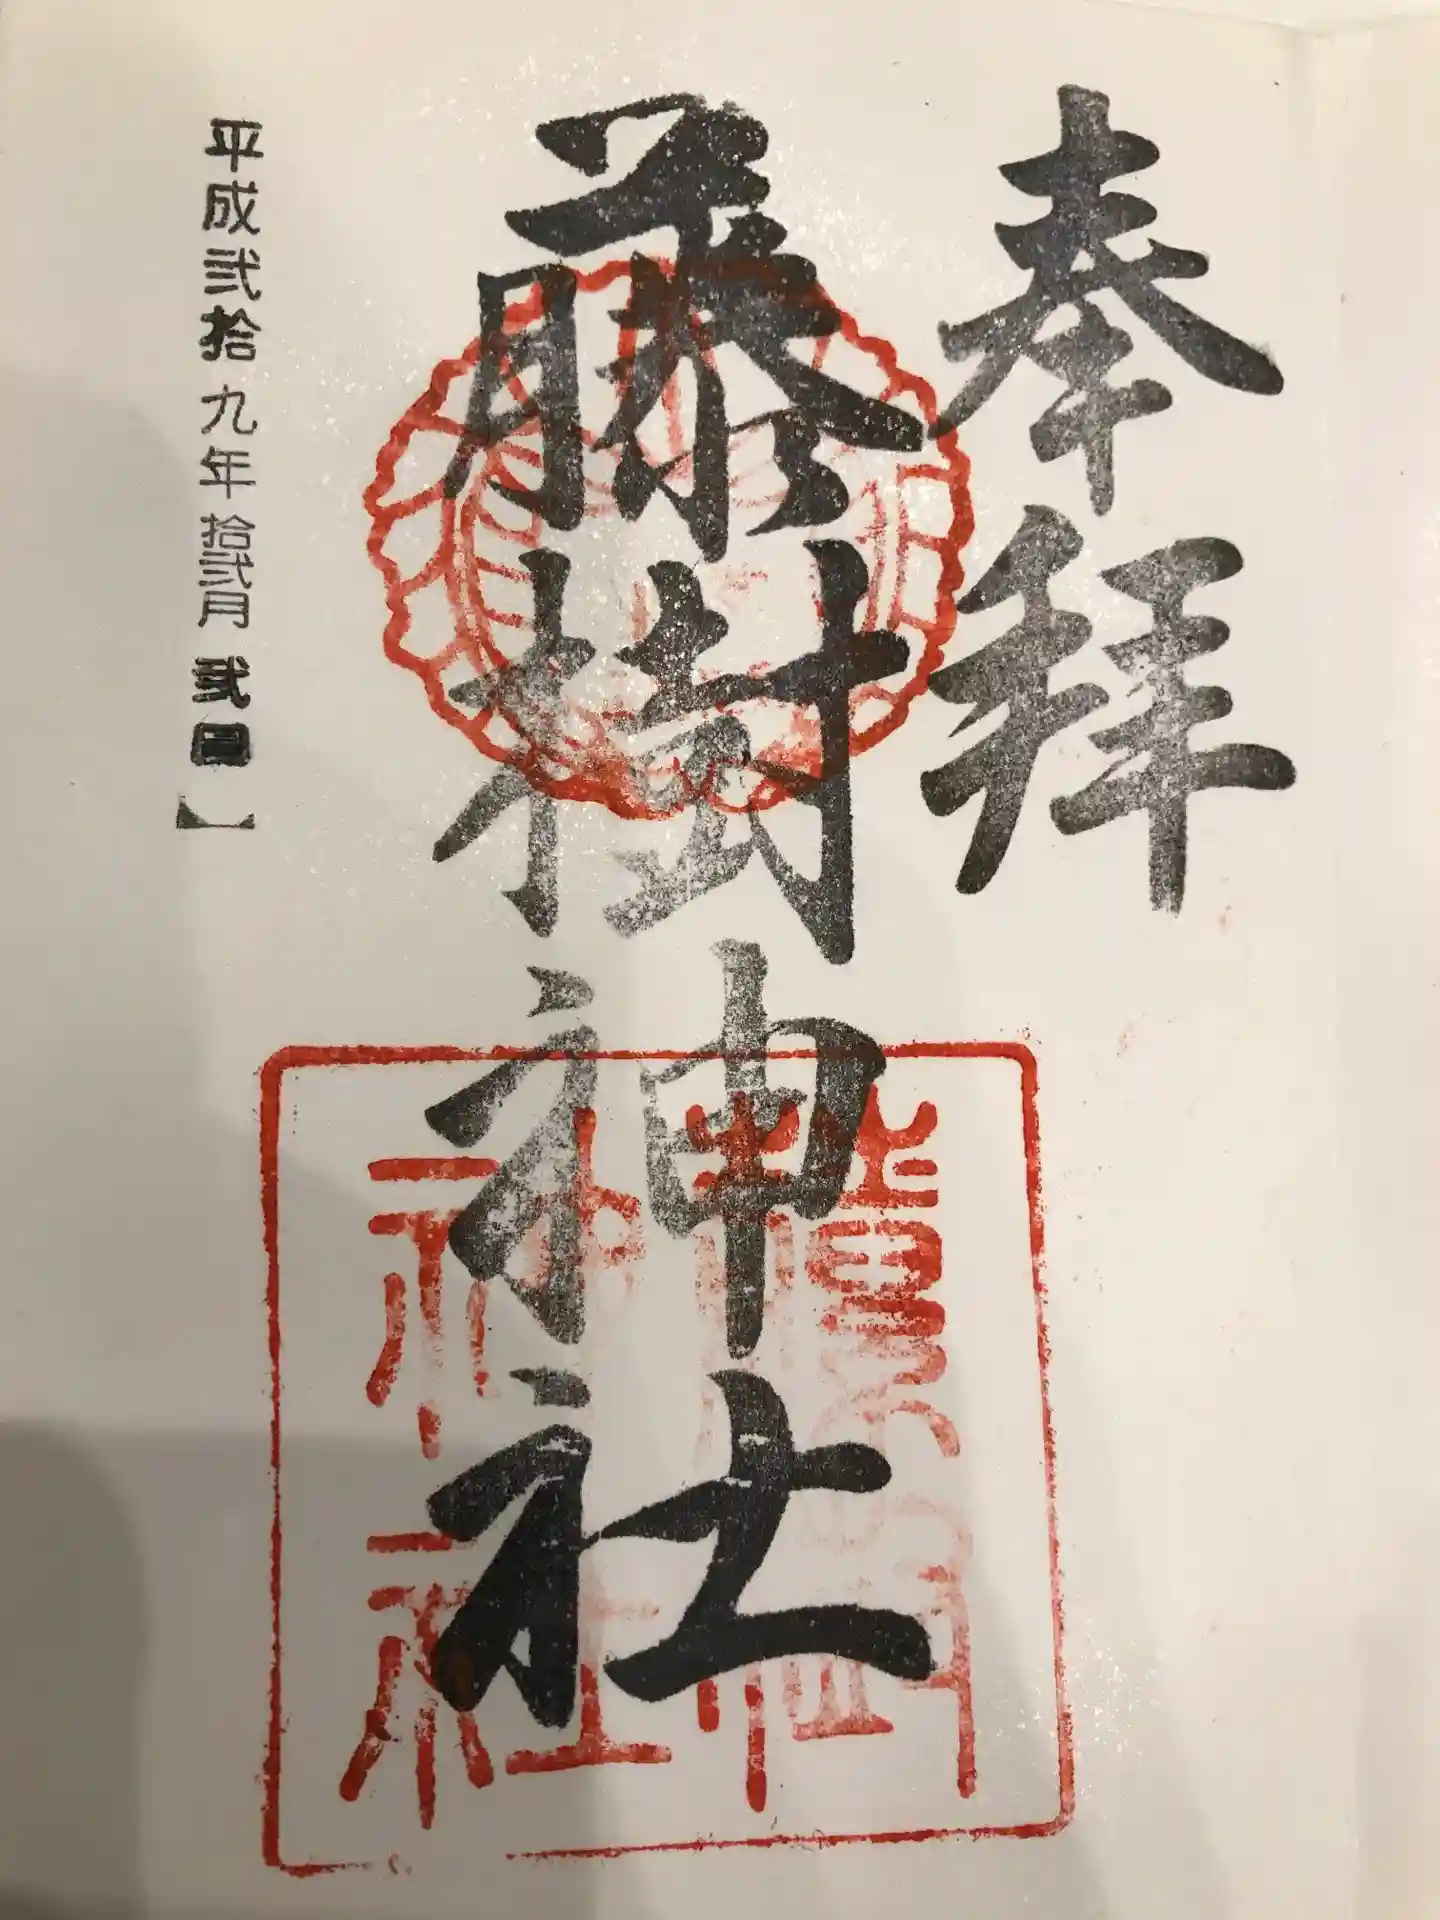 奉拝
藤樹神社
平成弐拾九年拾弐月弐日
藤樹
神社